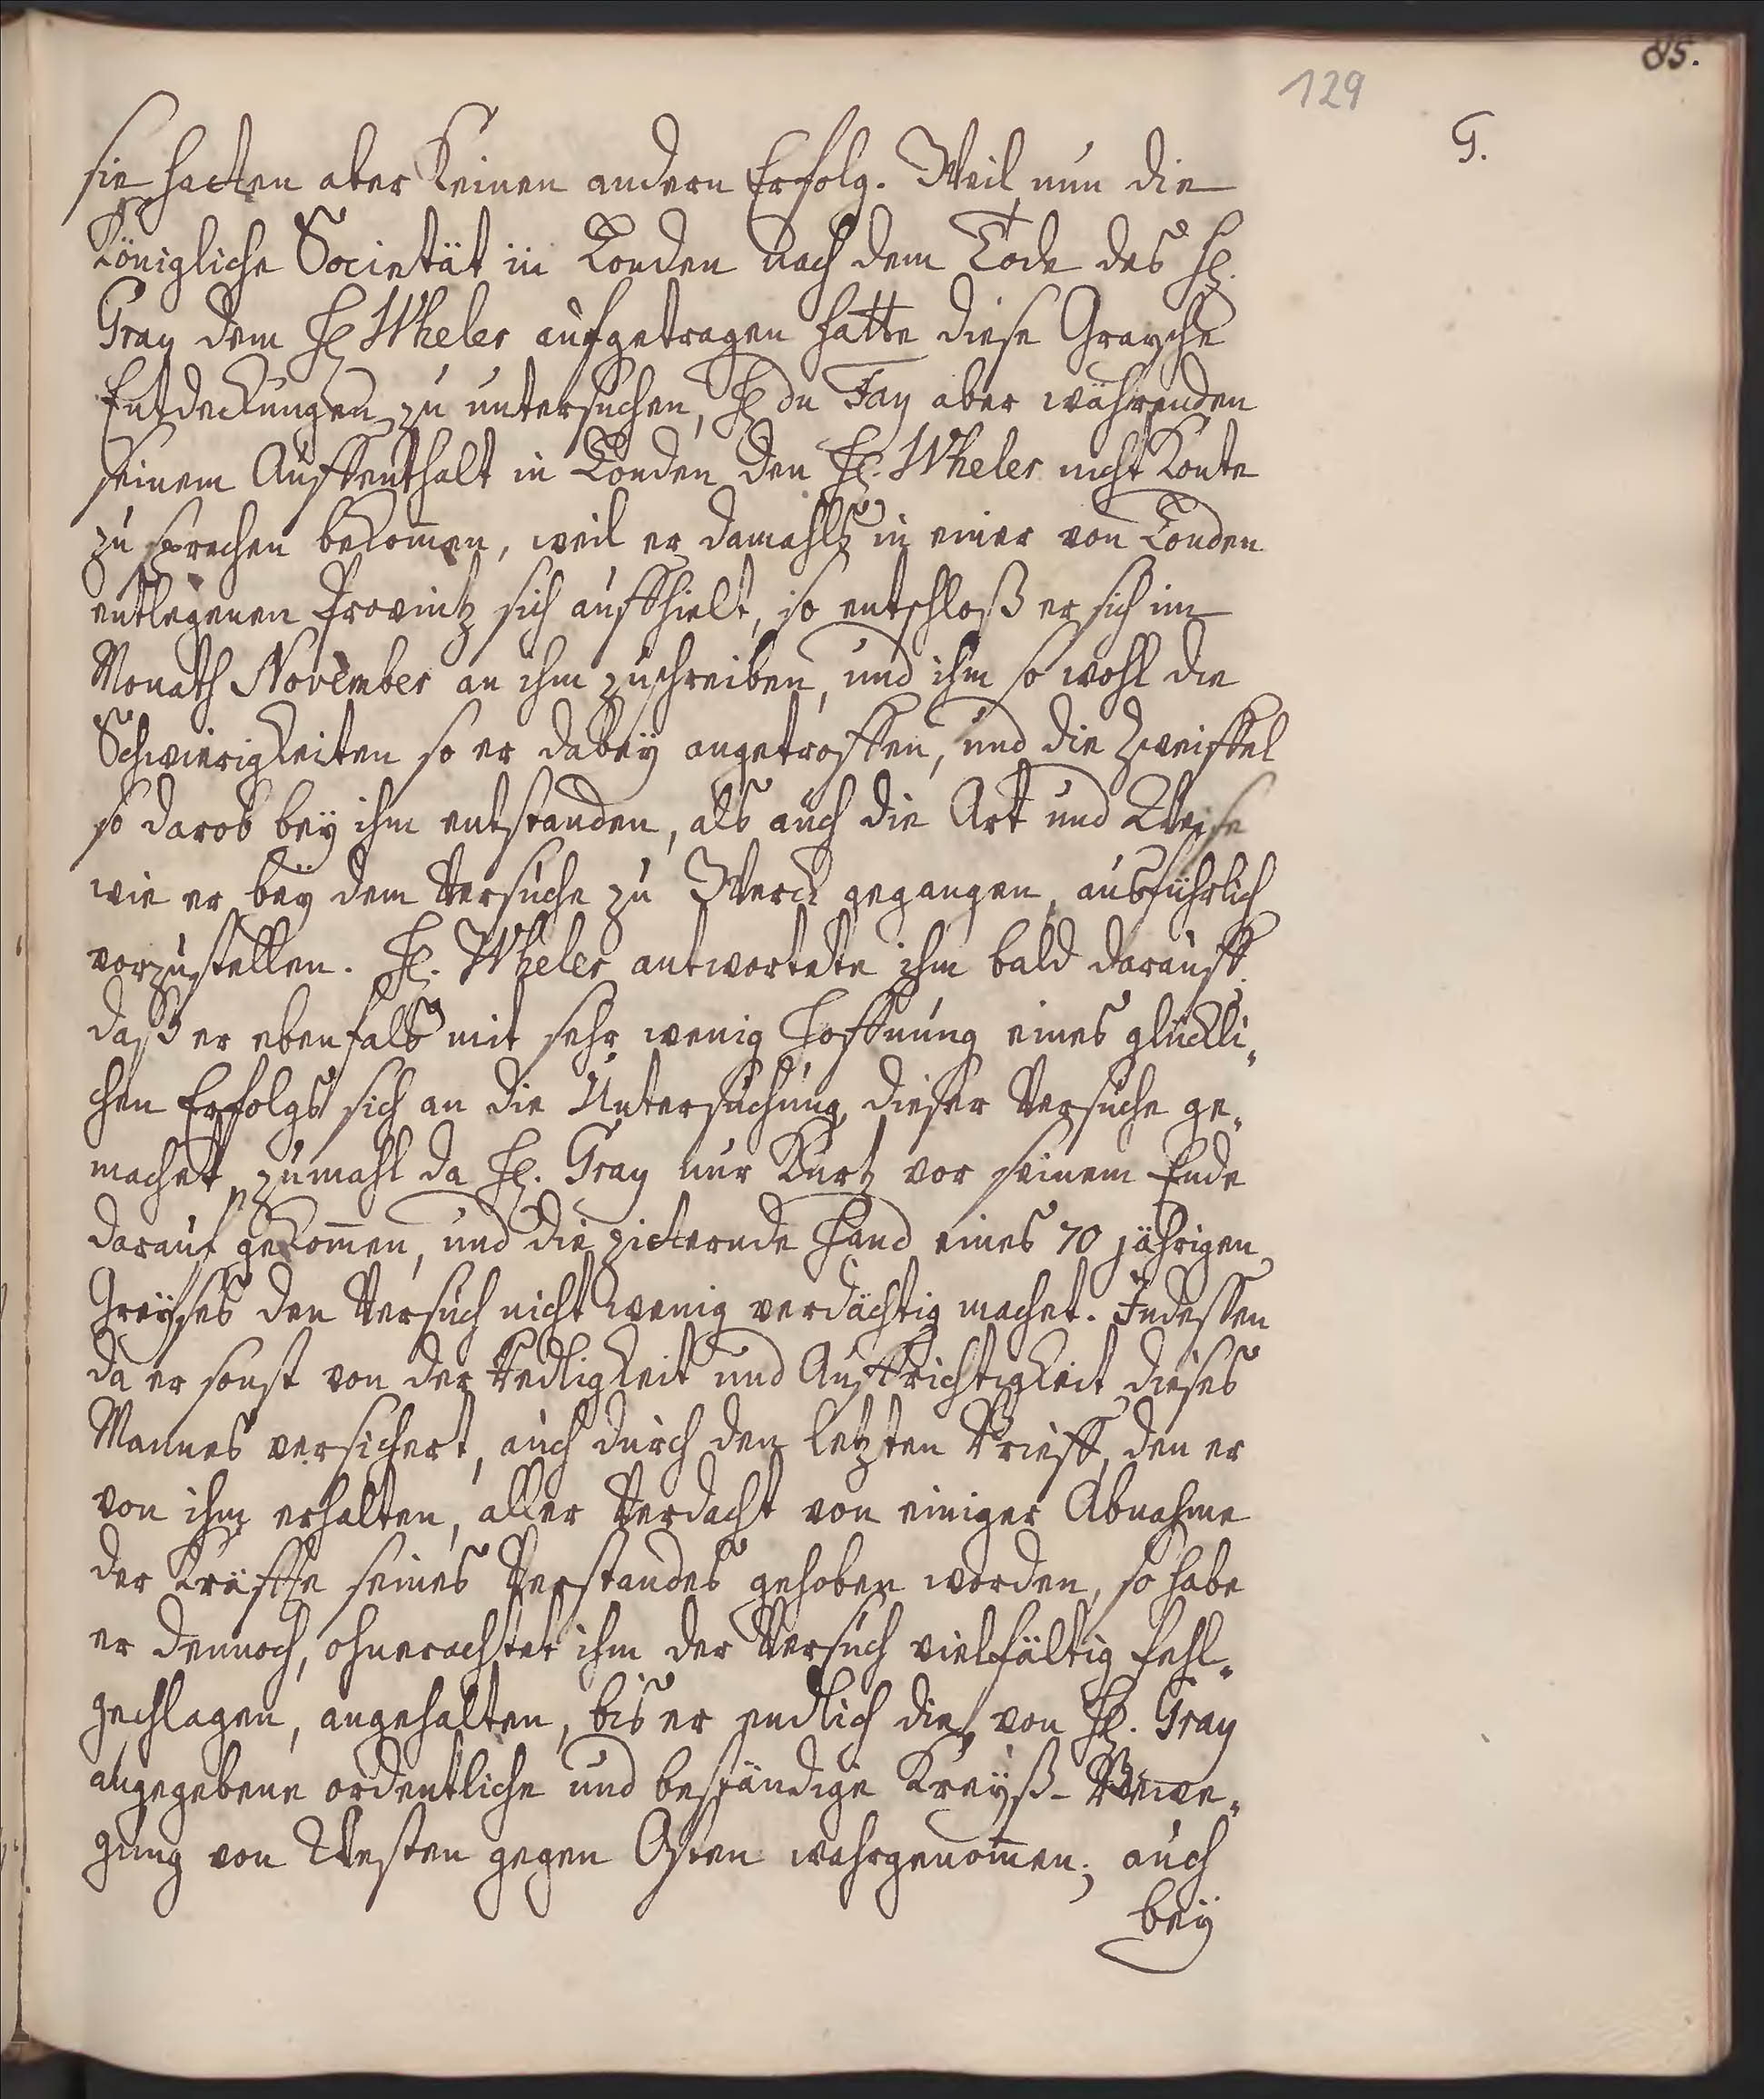 85.
129
G.
sie hatten aber keinen andern Erfolg. Weil nun die
Königliche Societät in Londen nach dem Tode des H.
Gray dem H Wheler aufgetragen hatte diese Graysche
Entdeckungen zu untersuchen, H du Fay aber währenden
seinem Auffenthalt in Londen den H. Wheler nicht konte
zu sprechen bekom̄en, weil er damahls in einer von Londen
entlegenen Provintz sich auffhielt, so entschloß er sich im
Monath November an ihm zuschreiben, und ihm so wohl die
Schwierigkeiten so er dabeÿ angetroffen, und die Zweiffel
so darob beÿ ihm entstanden, als auch die Art und Weise
wie er beÿ dem Versuche zu Werck gegangen, ausführlich
vorzustellen. H. Wheler antwortete ihm bald darauff.
daß er ebenfals mit sehr wenig Hoffnung eines glückli„
chen Erfolgs sich an die Untersuchung dieser Versuche ge„
machet, zumahl da H. Gray nur kurtz vor seinem Ende
darauf gekom̄en, und die zitternde Hand eines 70 jährigen
Greÿses den Versuch nicht wenig verdächtig machet. Indessen
da er sonst von der Redligkeit und Auffrichtigkeit dieses
Mannes versichert, auch durch den letzten Brieff, den er
von ihm erhalten, aller Verdacht von einiger Abnahme
der Kräffte seines Verstandes gehoben worden, so habe
er dennoch, ohnerachtet ihm der Versuch vielfältig fehl„
geschlagen, angehalten, bis er endlich die von H. Gray
angegebene ordentliche und beständige Kreÿß-Bewe„
gung von Westen gegen Osten wahrgenom̄en; auch
beÿ